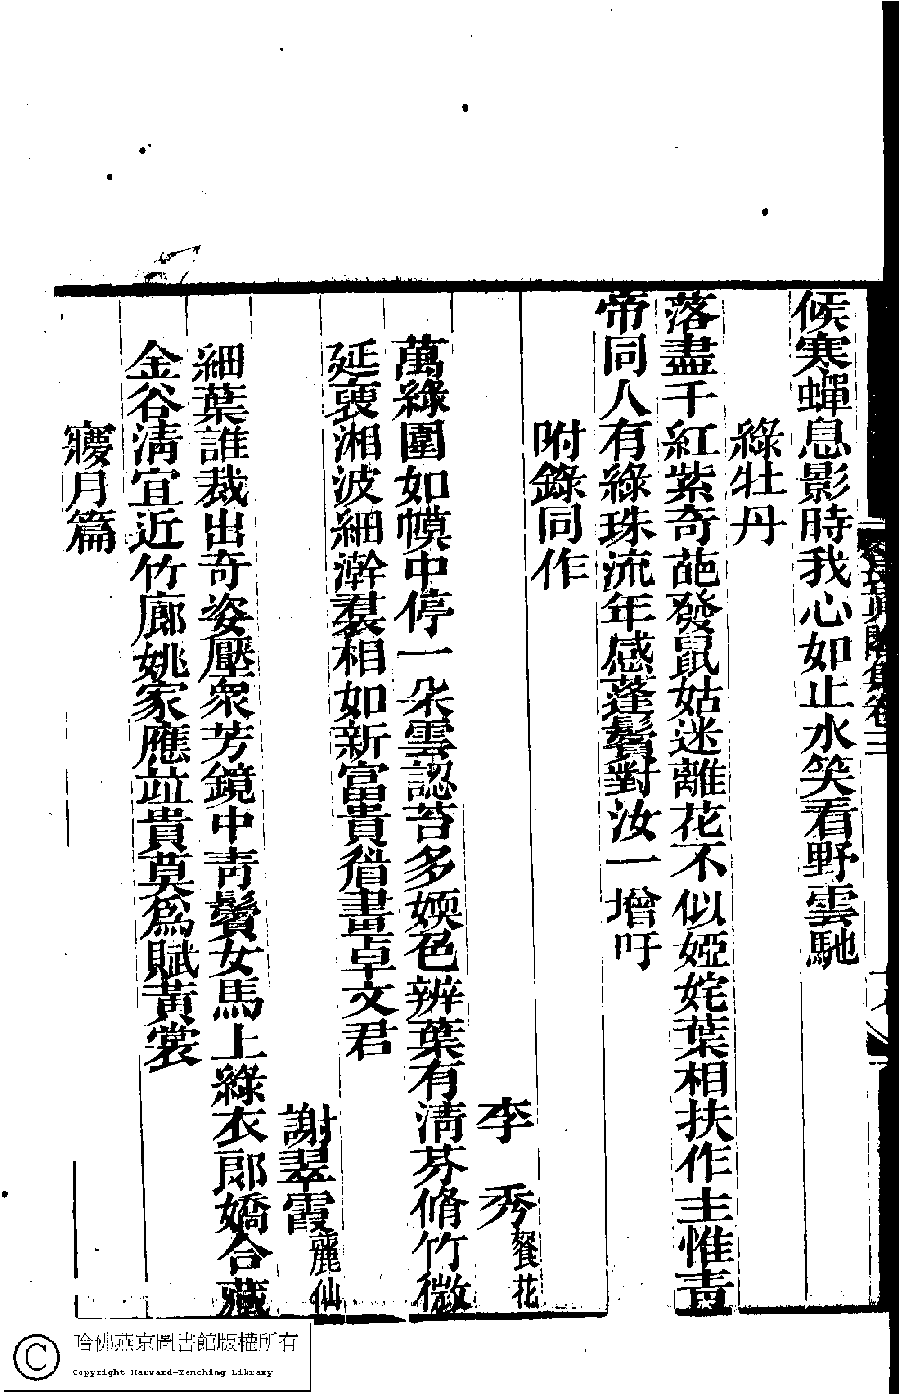 候寒蟬息影時我心如止水笑看野雲馳
綠牡丹
落盡千紅紫奇葩發鼠姑迷離花不似婭姹葉相扶作主惟青
帝同人有綠珠流年感蓬鬢對汝一增吁
附錄同作
李秀餐花
萬綠圍如幙中停一朵雲認苔多媆色辨葉有淸芬脩竹微
延裒湘波細澣羣相如新富貴眉畫卓文君
謝翠霞麗仙
細葉誰裁出奇姿壓衆芳鏡中靑鬢女馬上綠衣郞嬌合藏
金谷淸宜近竹廊姚家應竝貴莫爲賦黃裳
寢月篇
集卷三
哈佛燕京圖書館版權所有
Copyright Harvard-Yenching Library